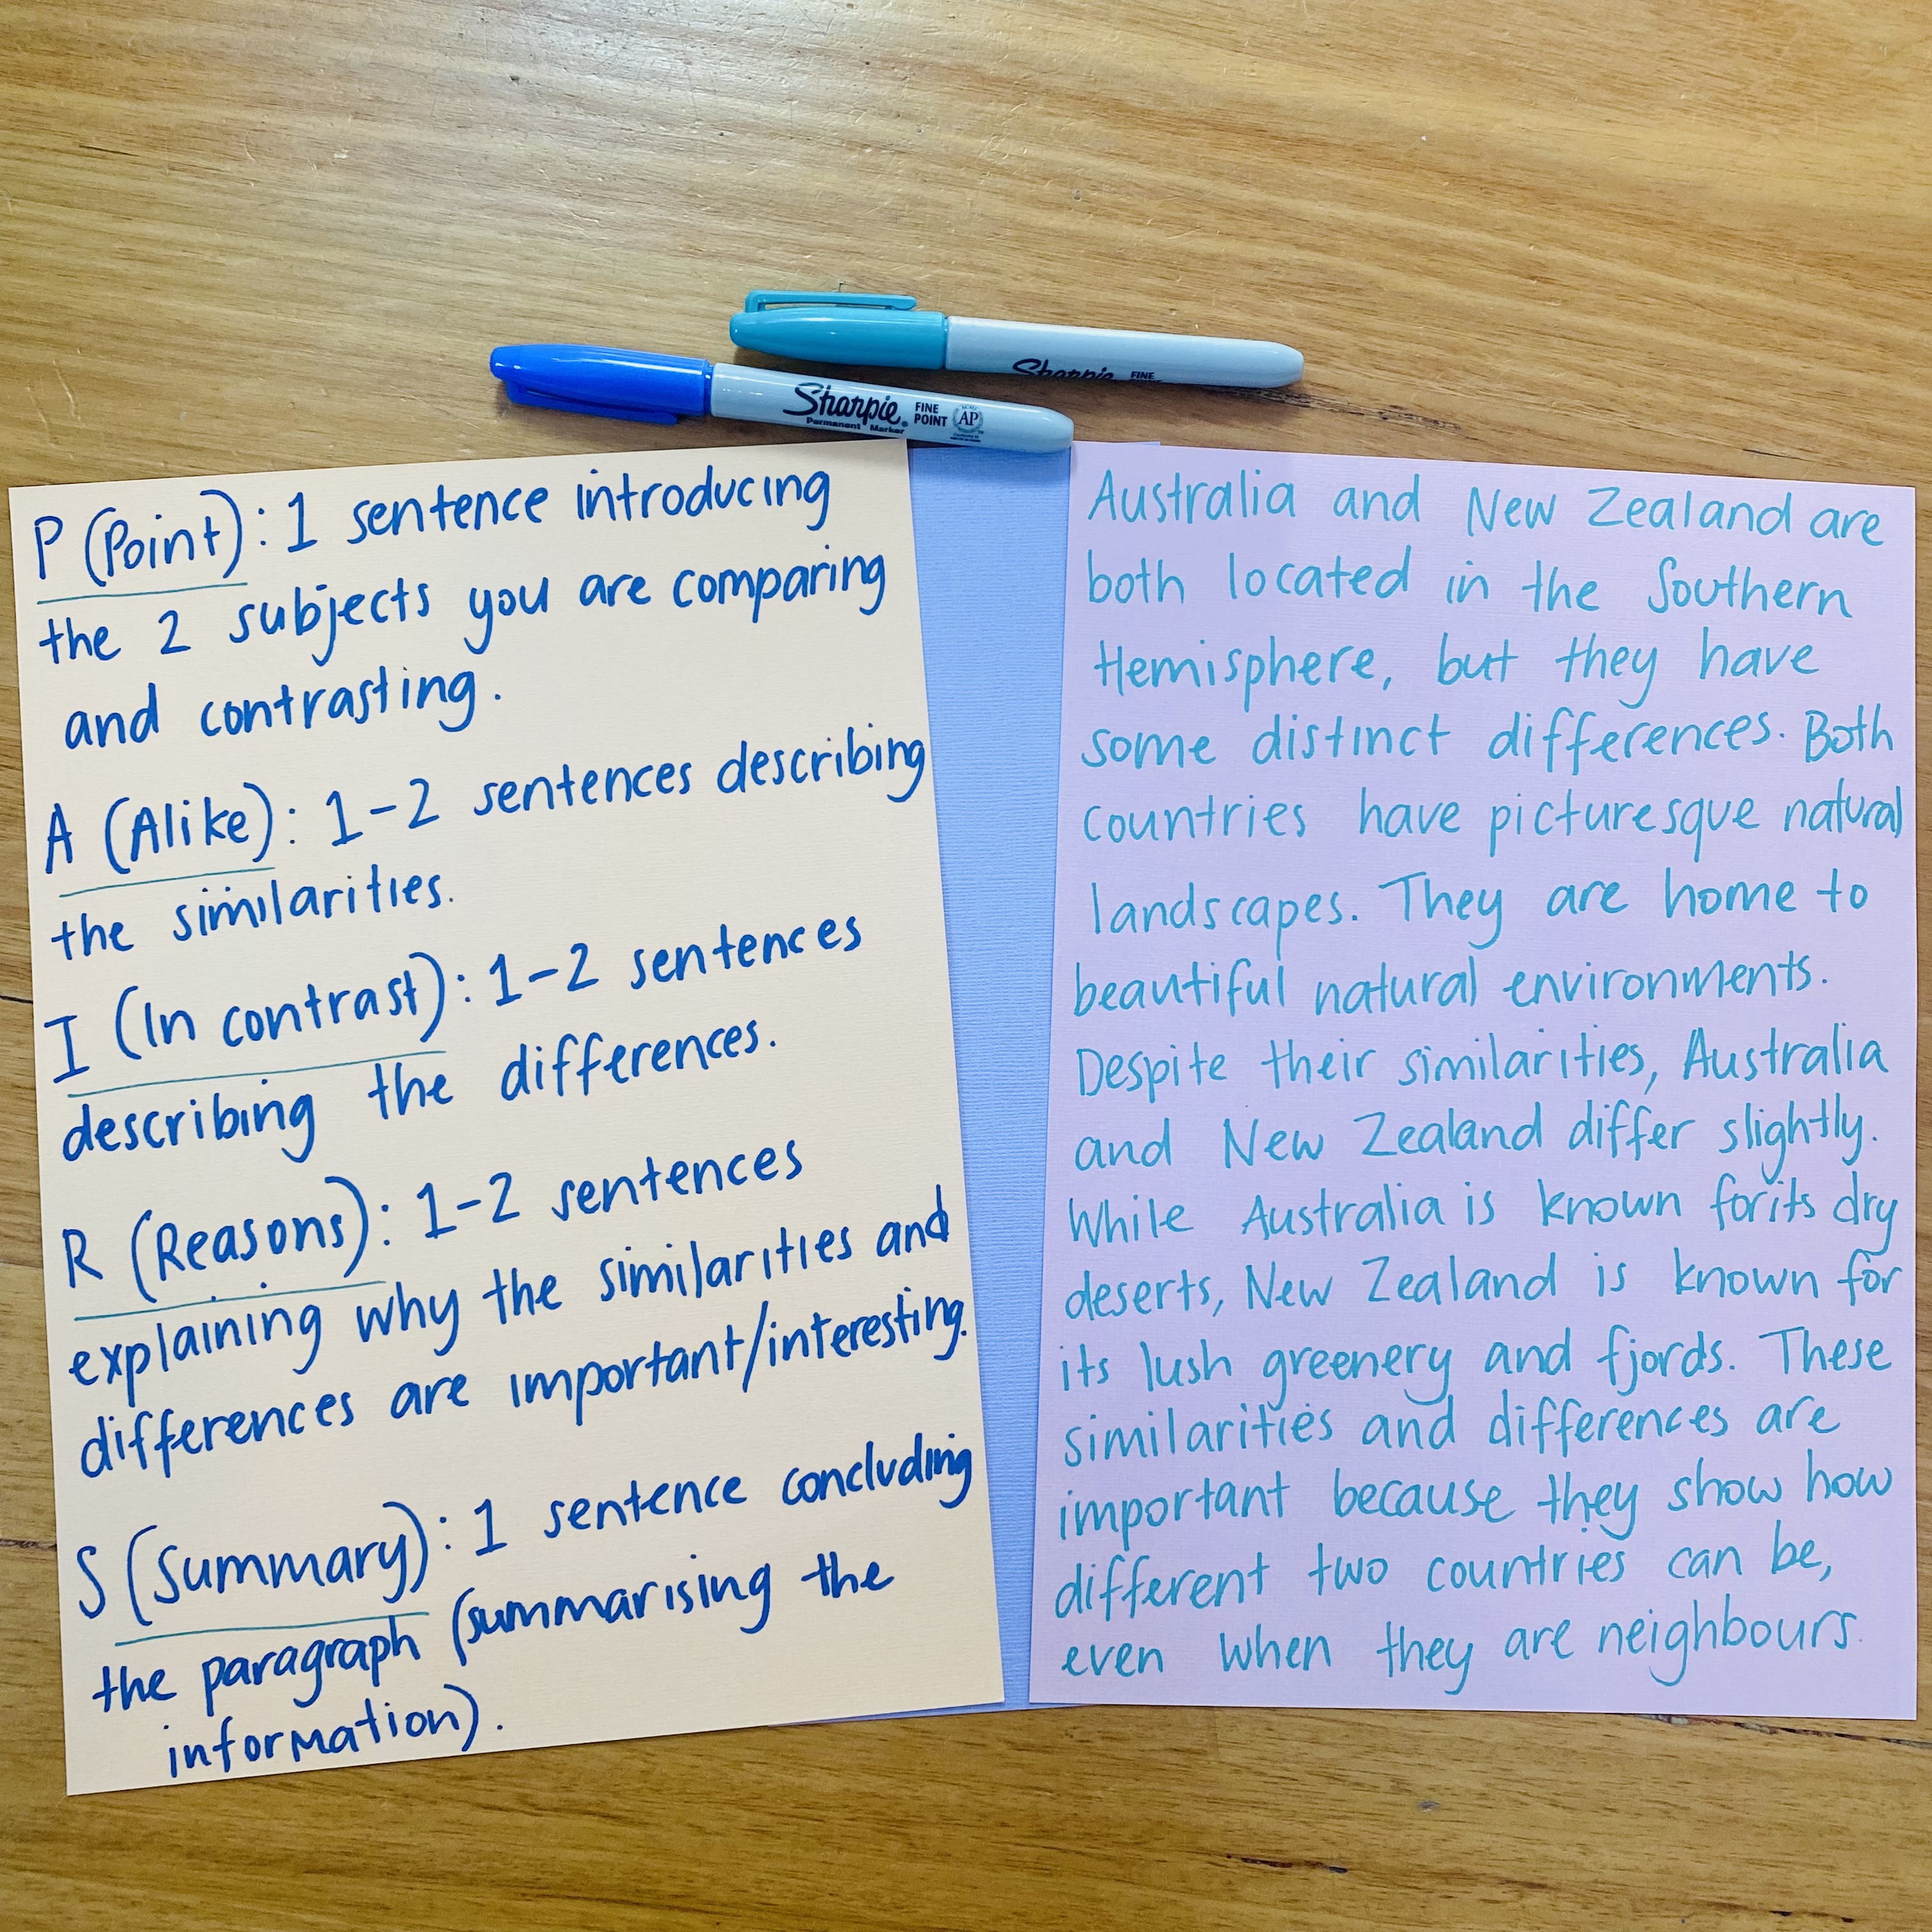 Sharpie FINE
Sharpie. FINE POINT AP
Permanent Marker
P (Point): 1 sentence introducing
the 2 subjects you are comparing
and contrasting.
A (Alike): 1-2 sentences describing
the similarities.
I (In contrast): 1-2 sentences
describing the differences.
R (Reasons): 1-2 sentences
explaining why the similarities and
differences are important/interesting.
S (Summary): 1 sentence concluding
the paragraph (summarising the
information).
Australia and New Zealand are
both located in the Southern
Hemisphere, but they have
some distinct differences. Both
countries have picturesque natural
landscapes. They are home to
beautiful natural environments.
Despite their similarities, Australia
and New Zealand differ slightly.
While Australia is known for its dry
deserts, New Zealand is known for
its lush greenery and fjords. These
similarities and differences are
important because they show how
different two countries can be,
even when they are neighbours.